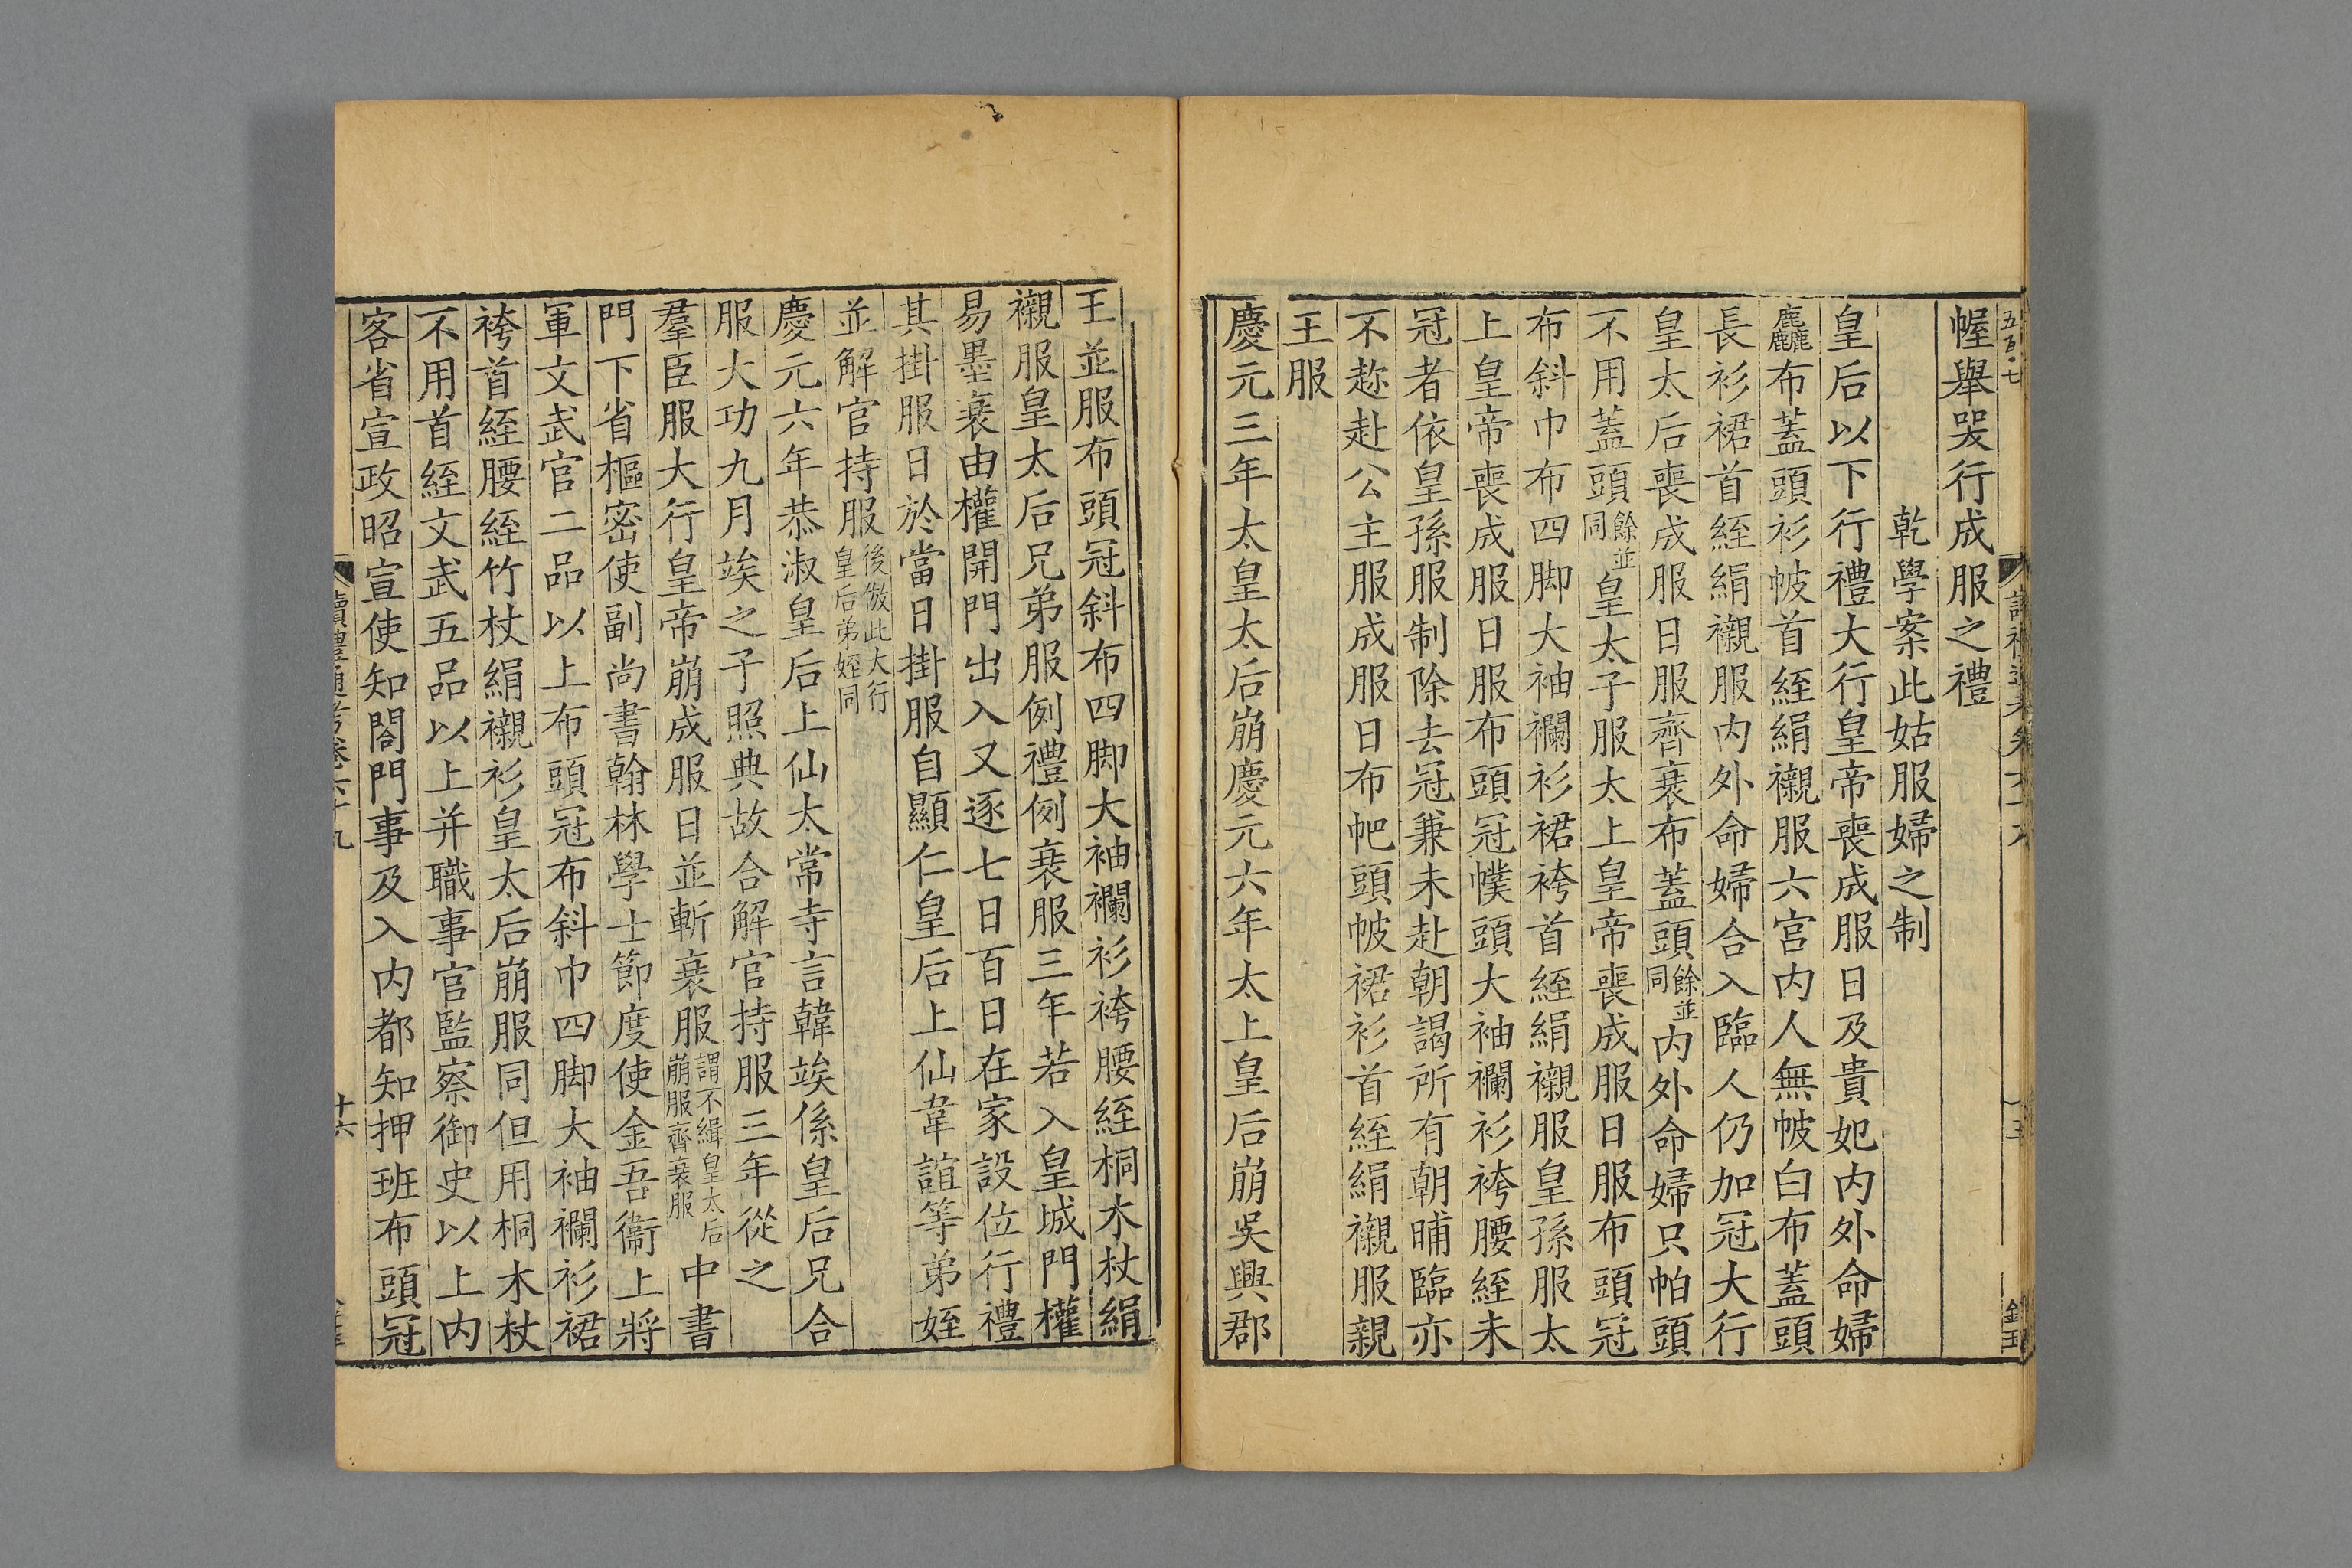 幄舉哭行成服之禮
乾學案此姑服婦之制
皇后以下行禮大行皇帝喪成服日及貴妃内外命婦
麤布蓋頭衫帔首絰絹襯服六宫内人無帔白布蓋頭
長衫裙首絰絹襯服内外命婦合入臨人仍加冠大行
皇太后喪成服日服齊衰布蓋頭餘並同内外命婦只帕頭
不用蓋頭餘並同皇太子服太上皇帝喪成服日服布頭冠
布斜巾布四脚大袖襴衫裙袴首絰絹襯服皇孫服太
上皇帝喪成服日服布頭冠幞頭大袖襴衫袴腰絰未
冠者依皇孫服制除去冠兼未赴朝謁所有朝晡臨亦
不趂赴公主服成服日布帊頭帔裙衫首絰絹襯服親
王服
慶元三年太皇太后崩慶元六年太上皇后崩吳興郡
王並服布頭冠斜布四脚大袖襴衫袴腰絰桐木杖絹
襯服皇太后兄弟服例禮例衰服三年若入皇城門權
易墨衰由權開門出入又逐七日百日在家設位行禮
其掛服日於當日掛服自顯仁皇后上仙韋誼等弟姪
並解官持服後倣此大行皇后弟姪同
慶元六年恭淑皇后上仙太常寺言韓竢係皇后兄合
服大功九月竢之子照典故合解官持服三年從之
羣臣服大行皇帝崩成服日並斬衰服謂不緝皇太后崩服齊衰服中書
門下省樞密使副尚書翰林學士節度使金吾衞上將
軍文武官二品以上布頭冠布斜巾四脚大袖襴衫裙
袴首絰腰絰竹杖絹襯衫皇太后崩服同但用桐木杖
不用首絰文武五品以上并職事官監察御史以上内
客省宣政昭宣使知閤門事及入内都知押班布頭冠
讀禮通考卷六十九
十六